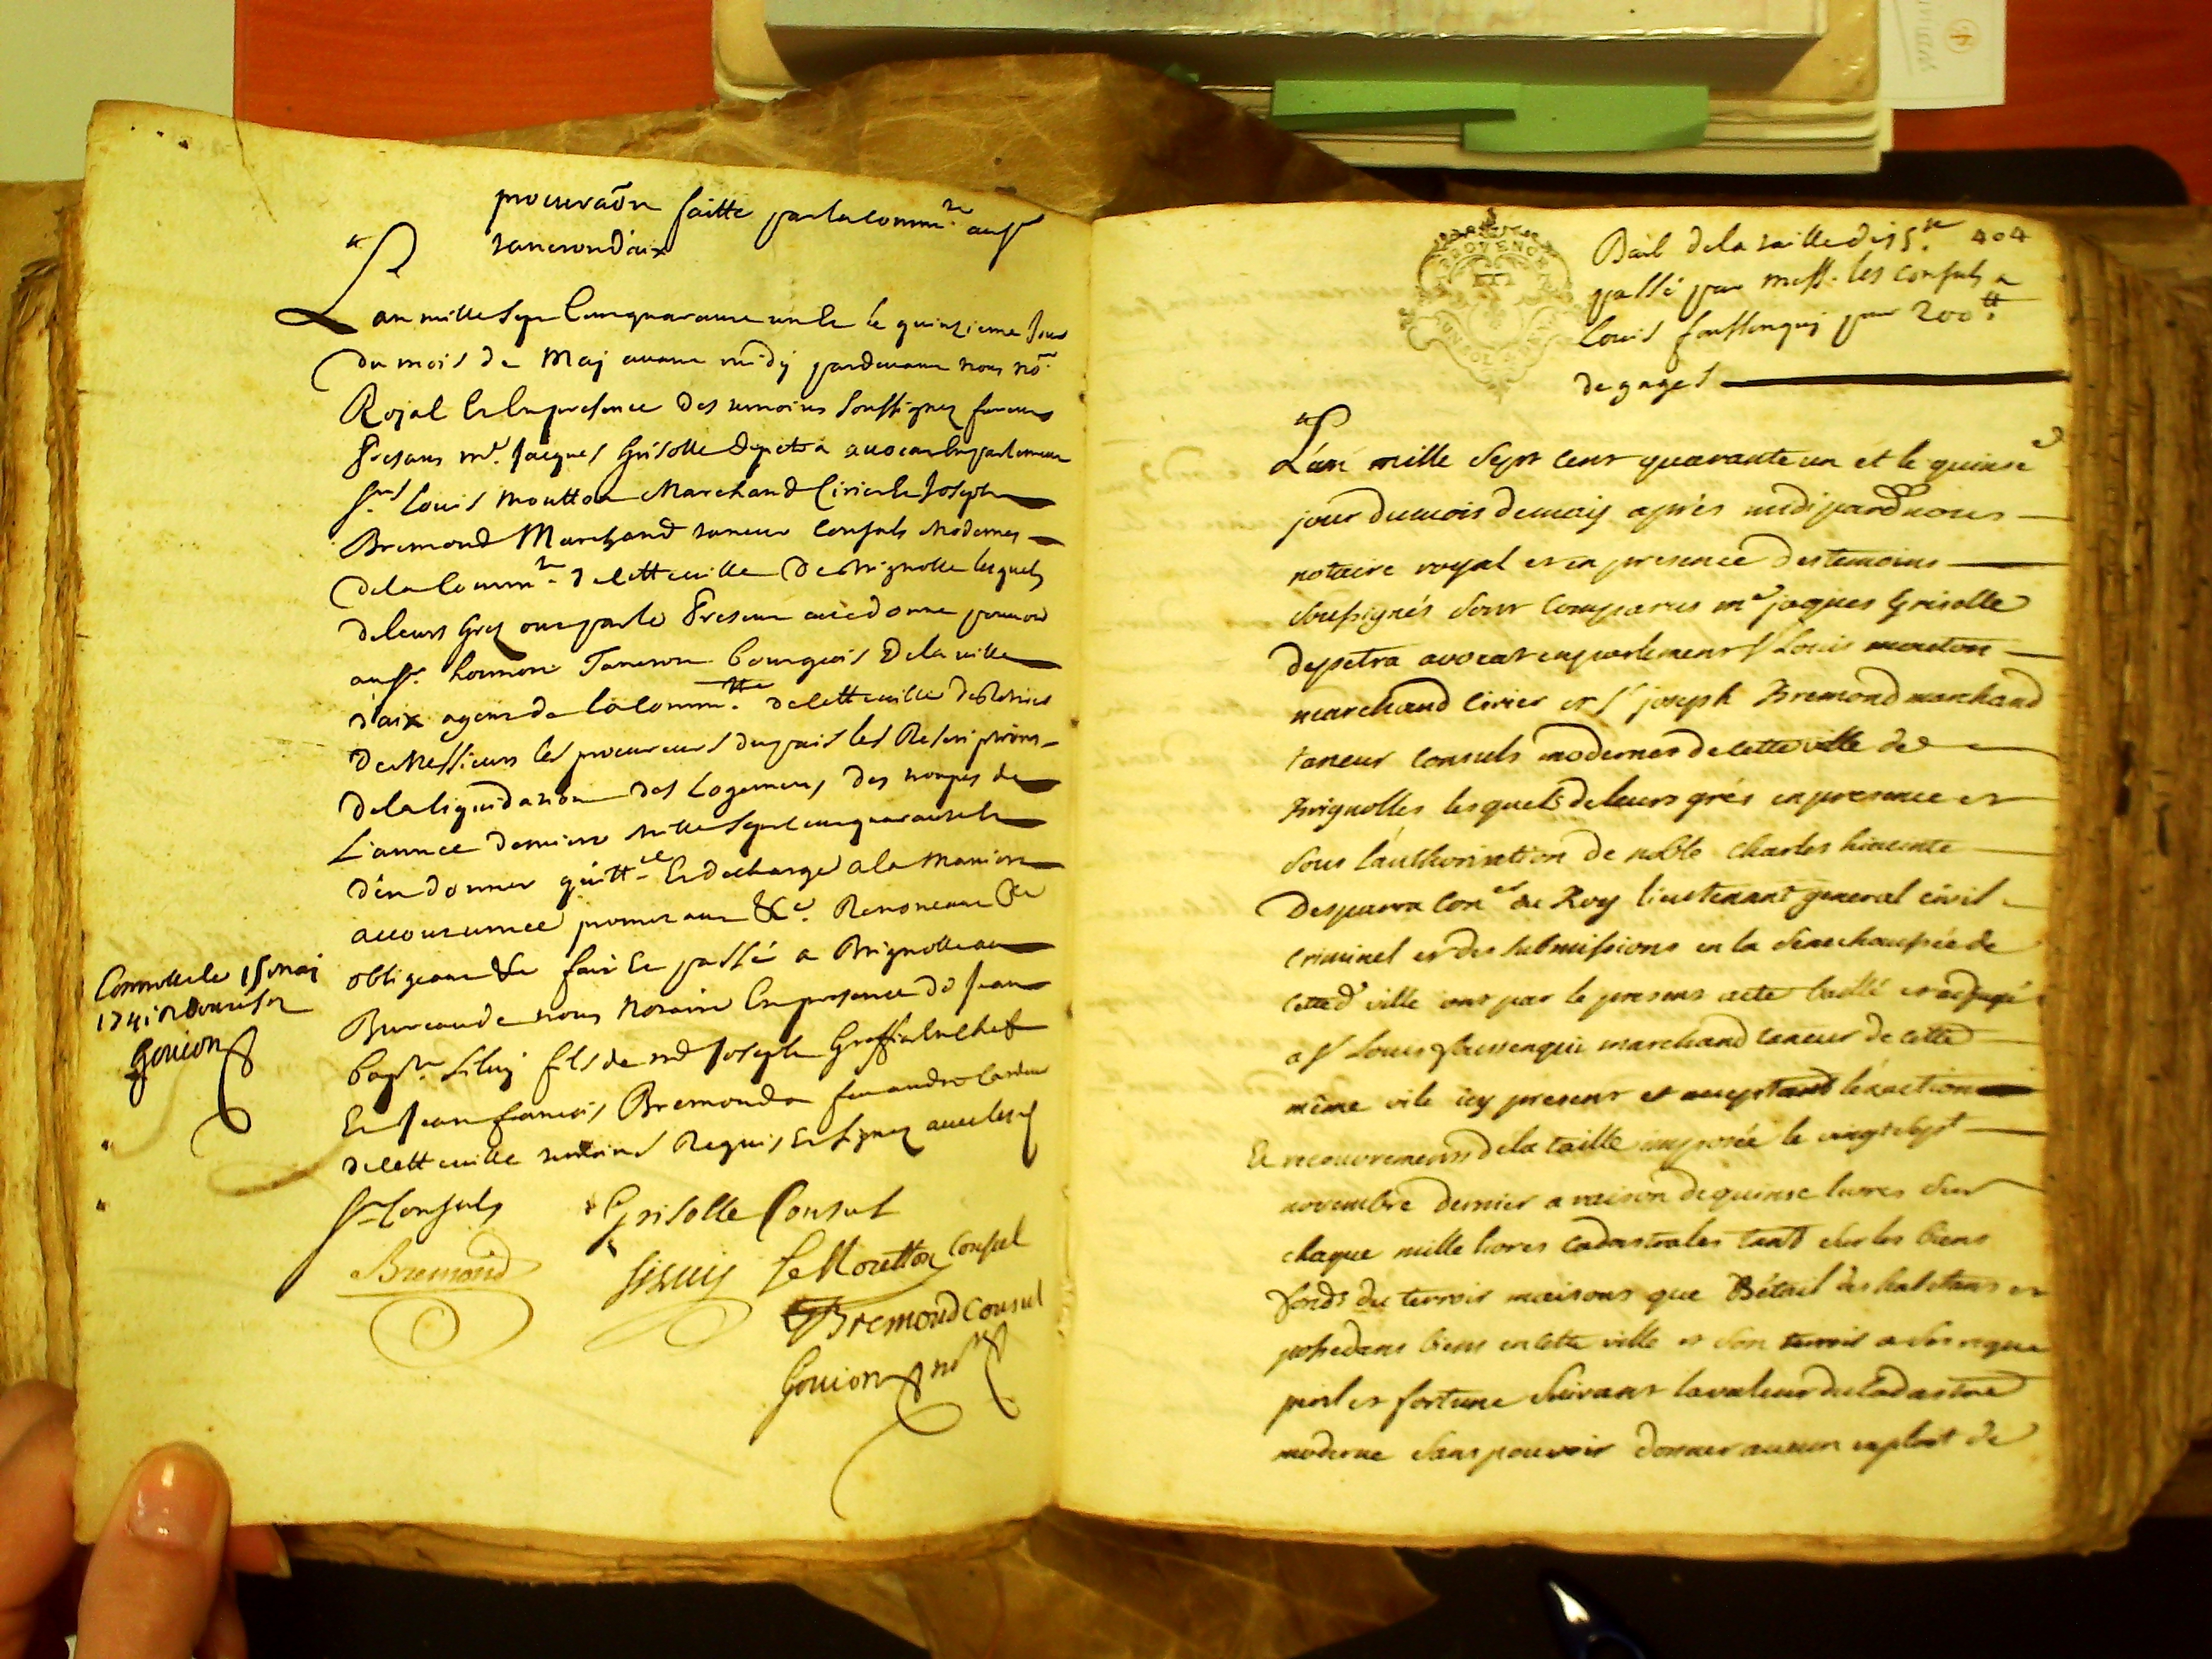 procuraõn faitte par la comm.te au sr
taneron d'aix
L'an mille sept cent quarante un et le quinzieme jour
du mois de May avant midy pardevant nous no.re
Royal et en presence des temoins soussignez furent
presans me. Jacques Grisolle depetra avocat en parlement
srs Louis Moutton Marchand Cirier et Joseph
Bremond Marchand taneur Consuls modernes
de la Comm.te de cette ville de Brignolle lesquels
de leurs grez ont par le present acte donné pouvoir
au sr. honnoré Taneron bourgeois de la ville
d'aix agent de la Comm.te de cette ville de retirer
de Messieurs les procureurs du pais les Rescriptions
de la liquidation des Logemens des troupes de
L'annee derniere mille sept cent quarante et
d'en donner quitt.ce et decharge a la maniere
accoutumée promettant &c. Renonceant &c
obligeant &c fait et passé a Brignolle au
Bureau de nous Notaire en presence de Jean
bapt.e Siluy fils de me Joseph Greffier en chef
et Jean francois Bremond
de cette ville temoins Requis et signez avec lesd
srs Consuls
Grisolle Consul
Bremond
Siluy
Le Moutton Consul
Bremond Consul
Goujon no.re
Controllé le 15 may
1741
Goujon
404
Bail de la taille de 15.#
passé par mess. les consuls a
Louis faussenquy pour 200.#
de gages
L'an mille sept cent quarante un et le quinse
jour du mois de may après midi pard nous
notaire royal et en presence des temoins
soussignés sont comparus me jaques Grisolle
depetra avocat en parlement sr Louis mouton
marchand cirier et sr joseph Bremond marchand
taneur consuls modernes de cette ville de
Brignolles lesquels de leurs grés en presence et
sous l'authorisation de noble charles hiacinte
Desparra Con.er du Roy lieutenant general civil
criminel et des submissions en la senechaussée de
cette d ville ont par le present acte baillé et adjugé
a sr Louis faussenqui marchand taneur de cette
même vile icy present et acceptant l'exaction
et recouvrements de la taille imposée le vingt sept
novembre dernier a raison de quinse livres sur
chaque mille livres cadastrales tant sur les biens
fonds du terroir maisons que Bétail des habitans et
possedans biens en cette ville et son terroir a ses risque
peril et fortune suivant la valeur du Cadastre
moderne sans pouvoir donner aucun exploit de